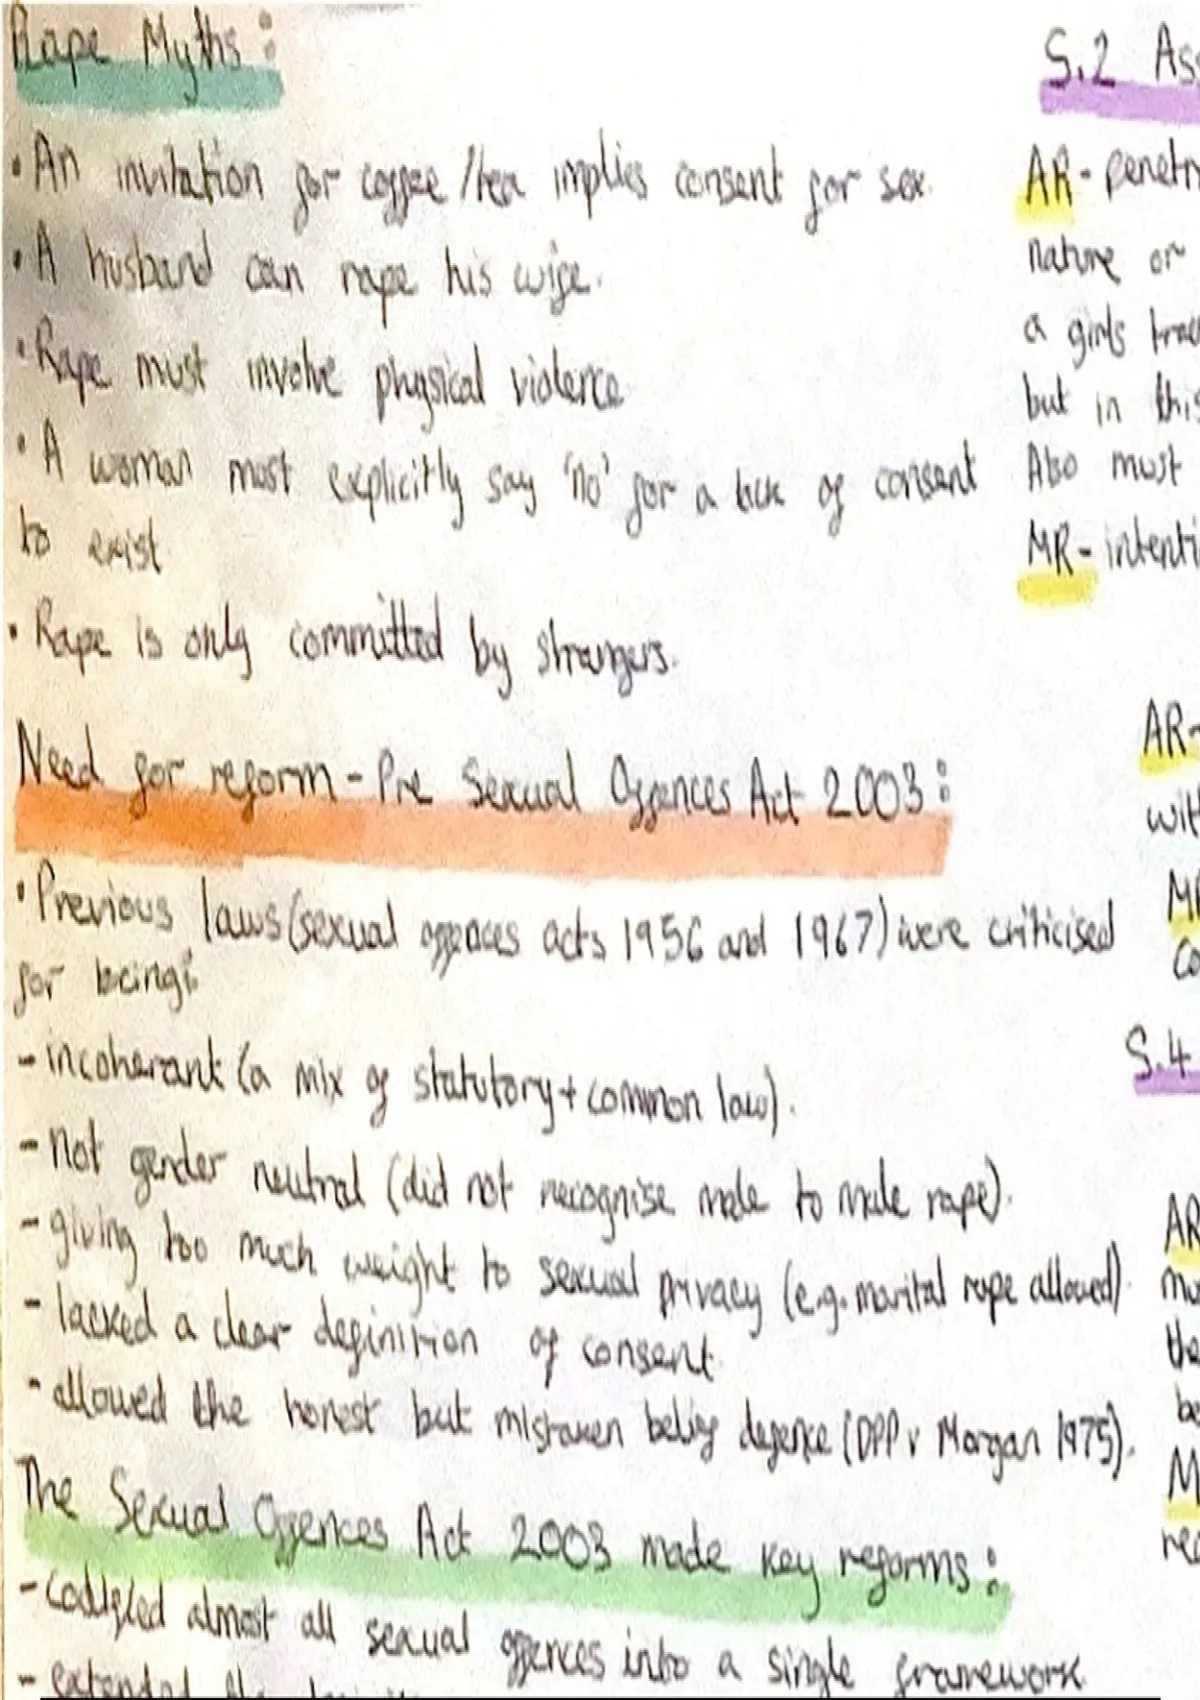 Rape Myths:
• An invitation for coffee/tea implies consent for sex.
• A husband can rape his wife.
• Rape must involve physical violence
• A woman must explicitly say 'no' for a lack of consent
to exist
• Rape is only committed by strangers.
Need for reform - Pre Sexual Offences Act 2003:
• Previous laws (sexual offences acts 1956 and 1967) were criticised
for being:
- incoherant (a mix of statutory + common law).
- not gender neutral (did not recognise male to male rape).
- giving too much weight to sexual privacy (e.g. marital rape allowed).
- lacked a clear definition of consent
- allowed the honest but mistaken belief defence (DPP v Morgan 1975).
The Sexual Offences Act 2003 made key reforms:
- codified almost all sexual offences into a single framework
- extended the
S.2
AR -
nature or
a girls
but in this
Also must
MR -
AR -
S.4
AR